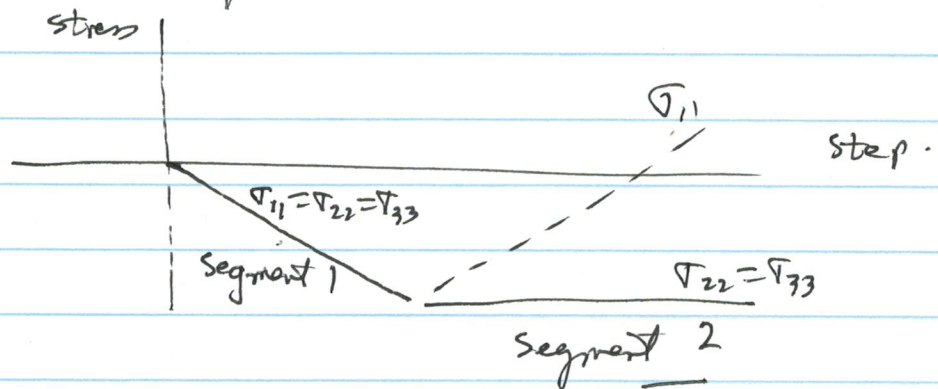 stress
σ₁₁
step.
σ₁₁=σ₂₂=σ₃₃
segment 1
σ₂₂=σ₃₃
segment 2